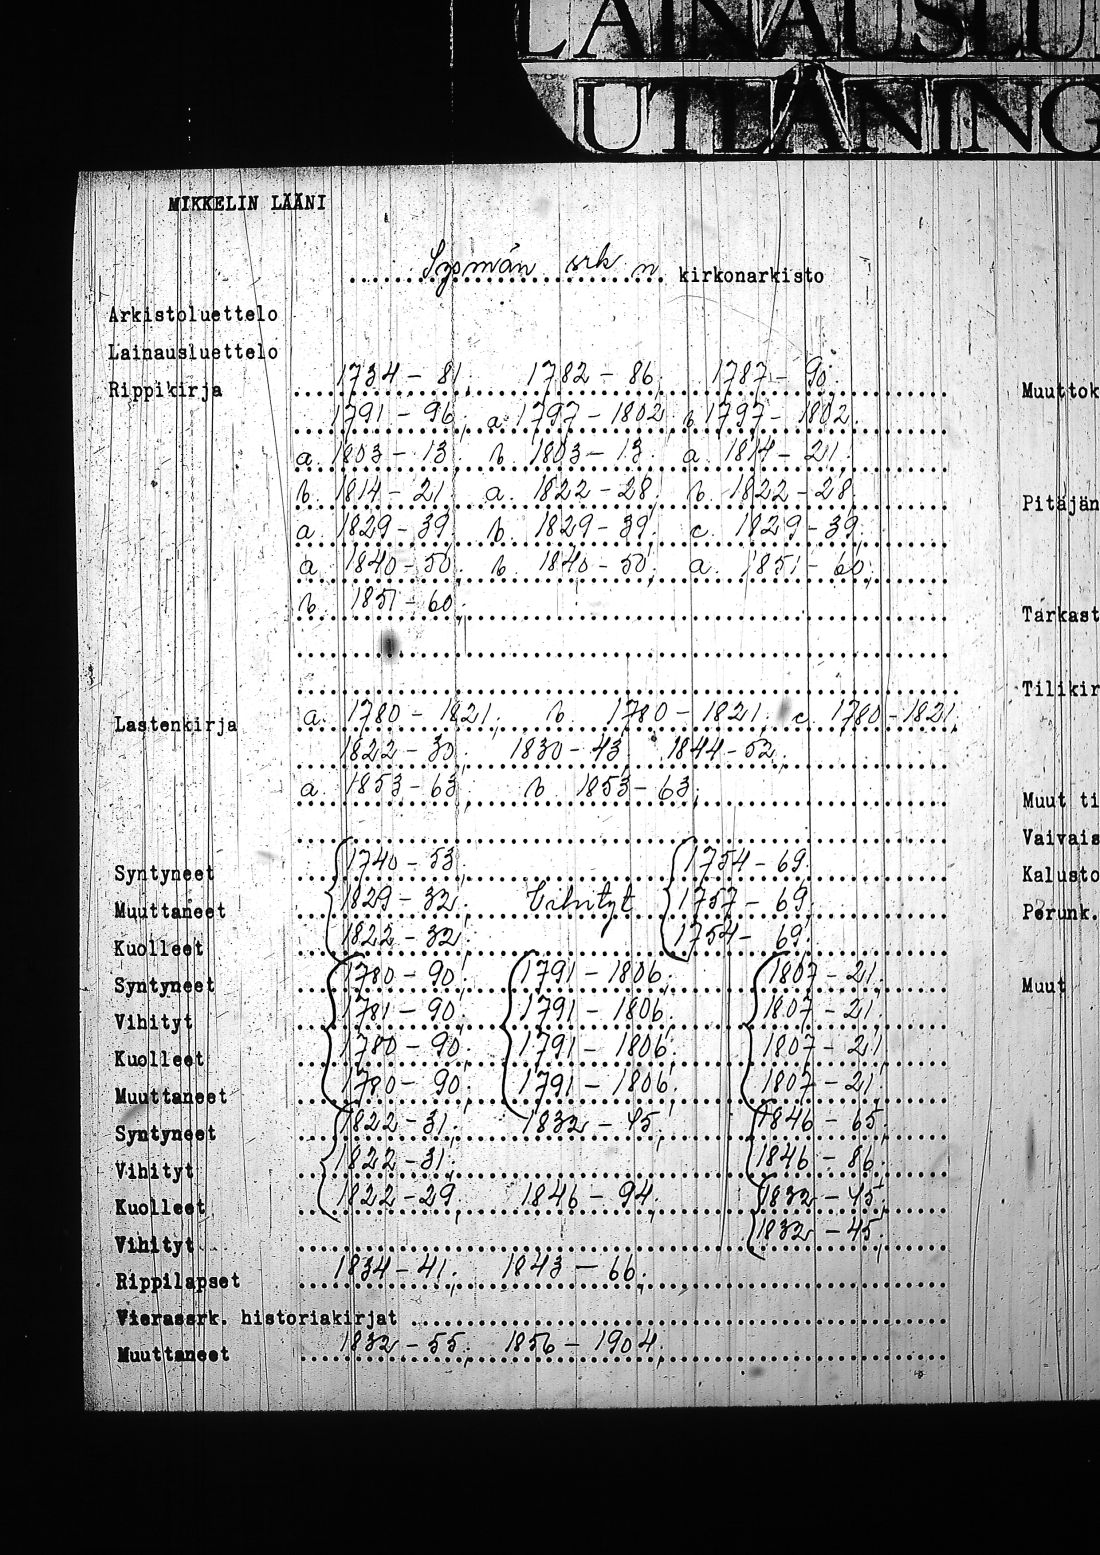 LAINAUSLU
UTLÅNING
MIKKELIN LÄÄNI
Sysmän srk n. kirkonarkisto
Arkistoluettelo
Lainausluettelo
Rippikirja 1734-81, 1782-86, 1787-90. Muuttok
1791-96, a. 1797-1802, b. 1797-1802.
a. 1803-13, b. 1803-13. a. 1814-21.
b. 1814-21. a. 1822-28. b. 1822-28. Pitäjän
a. 1829-39. b. 1829-39. c. 1829-39.
a. 1840-50. b. 1840-50. a. 1851-60.
b. 1851-60. Tarkast
Tilikir
Lastenkirja a. 1780-1821, b. 1780-1821, c. 1780-1821,
1822-30, 1830-43, 1844-52,
a. 1853-63, b. 1853-63, Muut ti
Vaivais
Syntyneet 1740-53, 1754-69. Kalusto
Muuttaneet 1829-32. Vihityt 1757-69. Perunk.
Kuolleet 1822-32. 1754-69.
Syntyneet 1780-90, 1791-1806, 1807-21, Muut
Vihityt 1781-90, 1791-1806. 1807-21.
Kuolleet 1780-90, 1791-1806. 1807-21,
Muuttaneet 1780-90, 1791-1806. 1807-21,
Syntyneet 1822-31, 1832-45, 1846-65,
Vihityt 1822-31, 1846-86.
Kuolleet 1822-29, 1846-94, 1832-45,
Vihityt 1832-45,
Rippilapset 1834-41, 1843-66,
Vierassrk. historiakirjat
Muuttaneet 1832-55, 1856-1904,